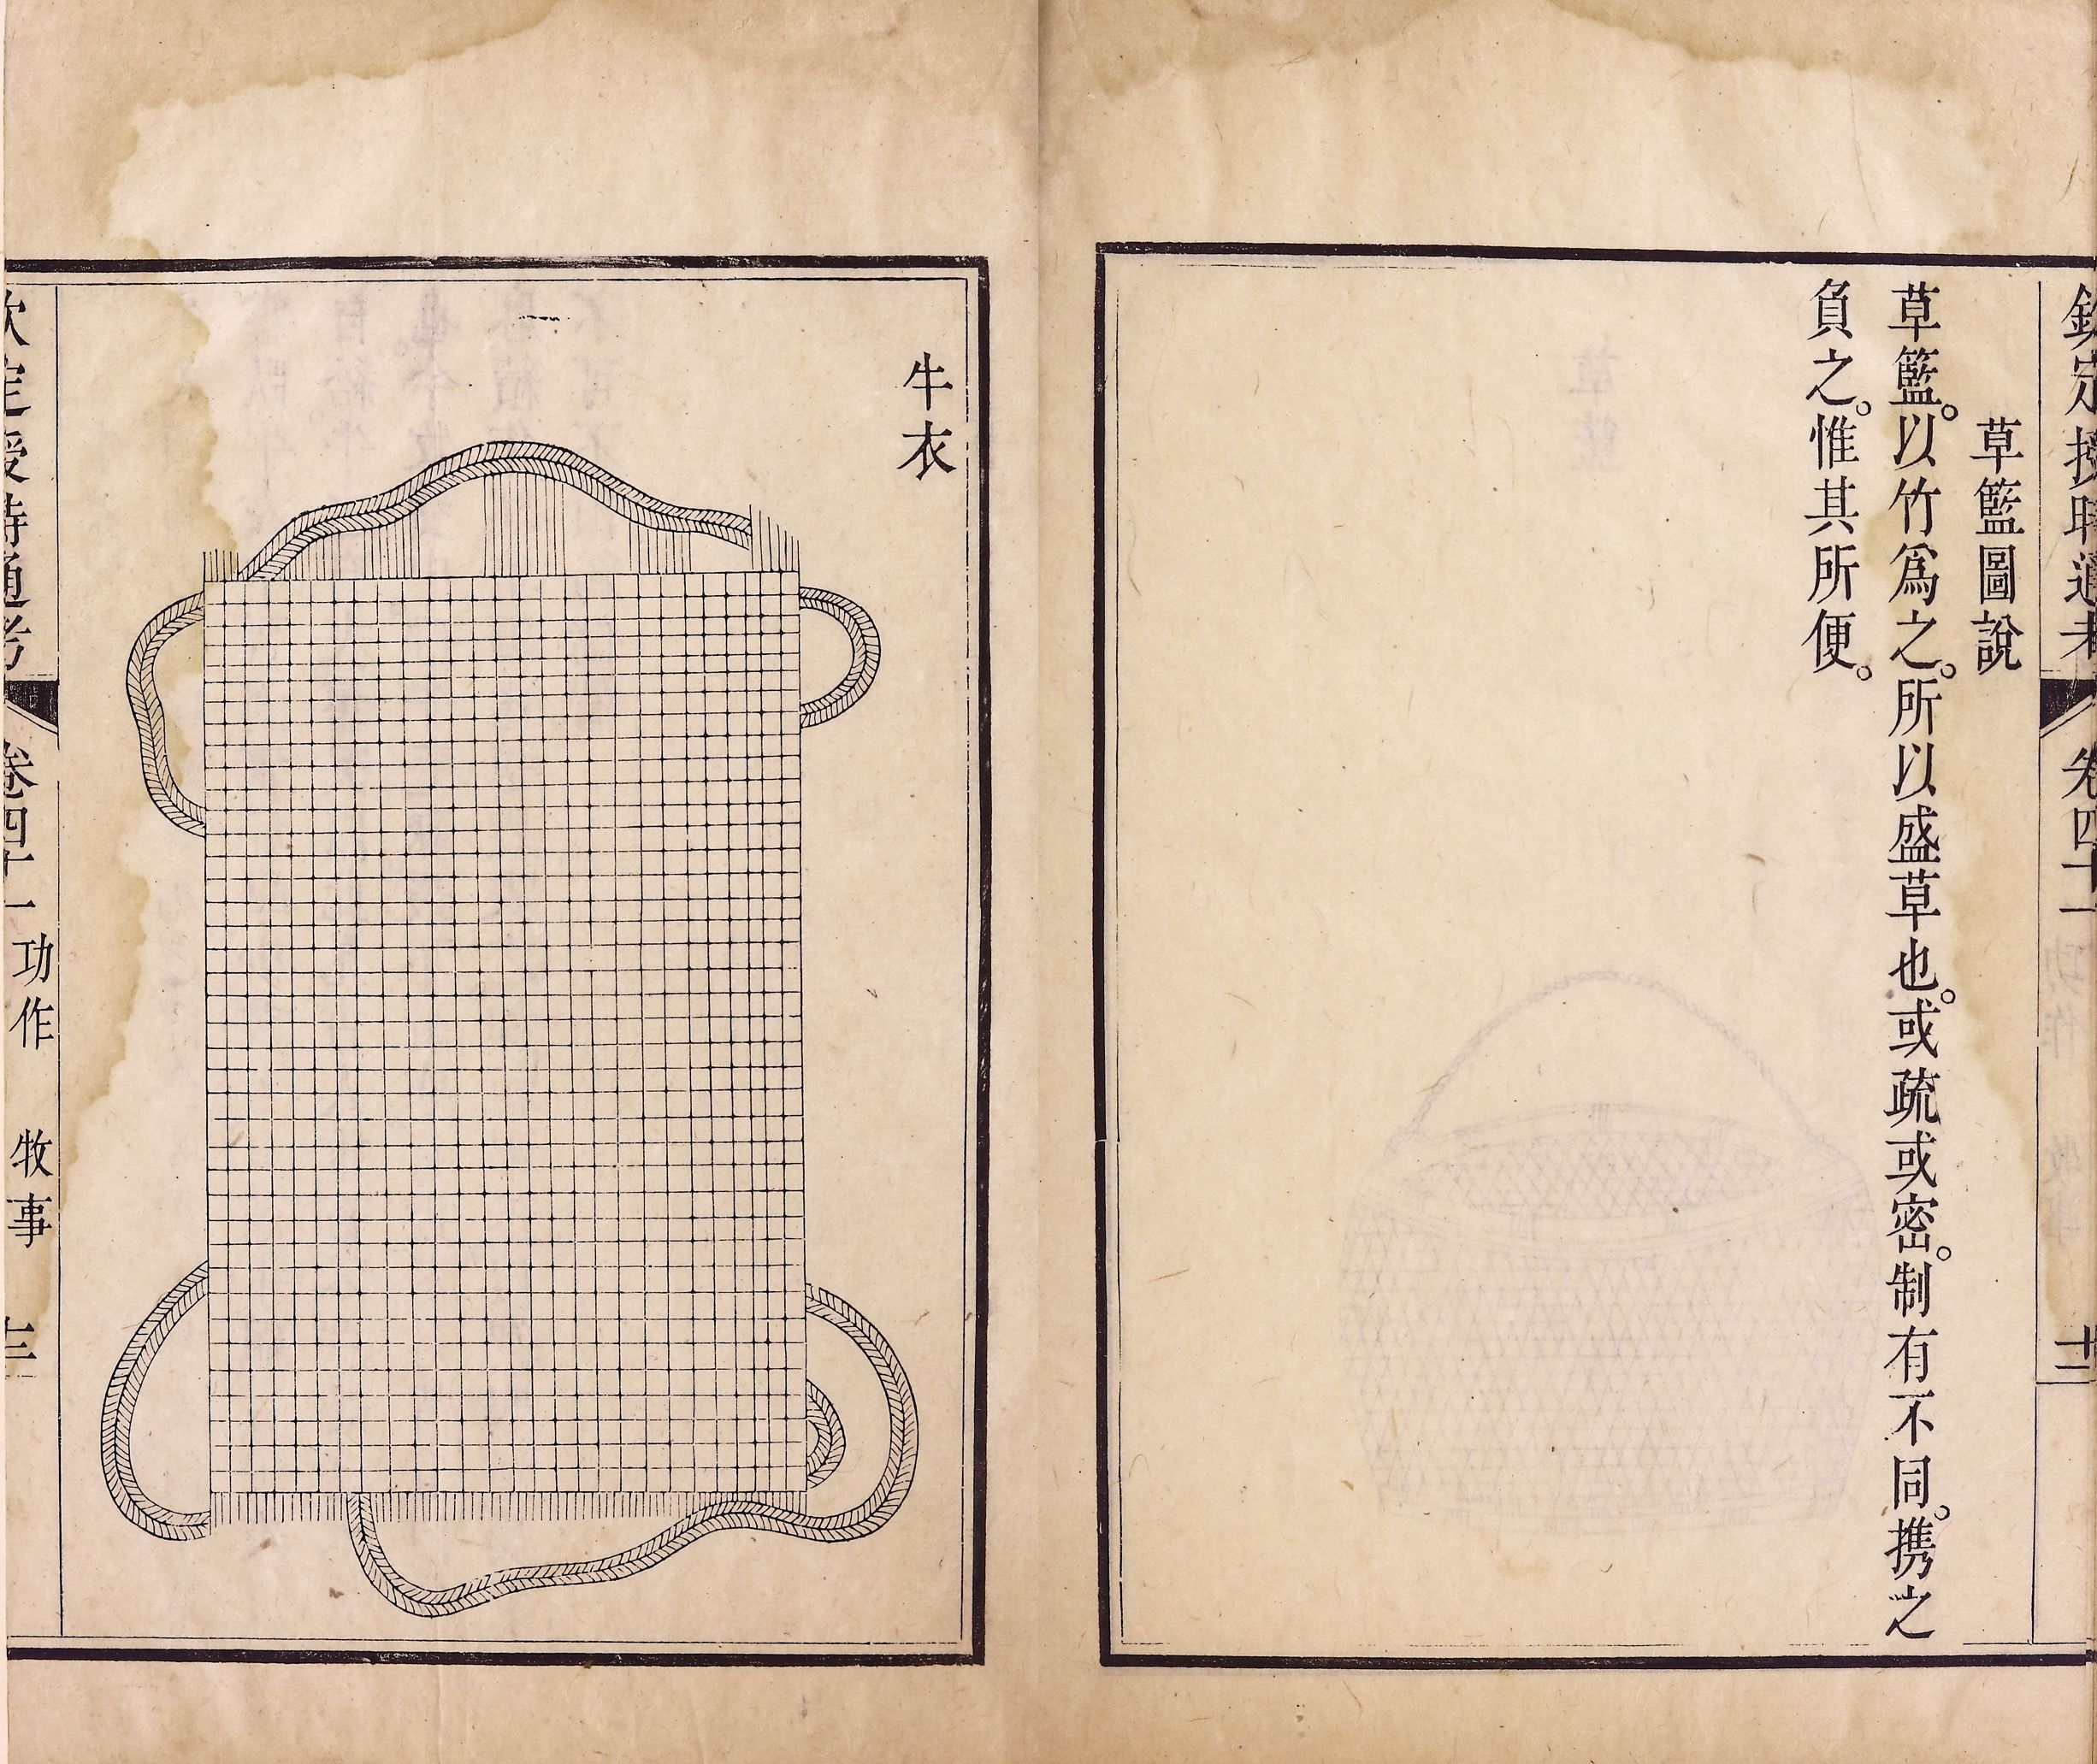 欽定授時通考
卷四十一
十二
草籃圖說
草籃。以竹爲之。所以盛草也。或疏或密。制有不同。携之
負之。惟其所便。
牛衣
欽定授時通考
卷四十一
功作
牧事